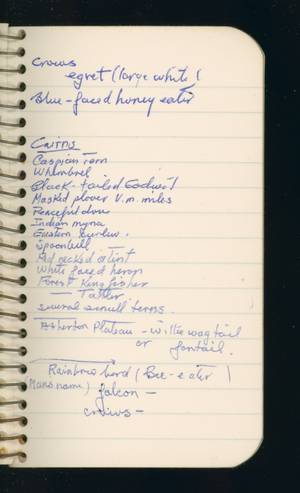 Crows
egret (large white)
Blue-faced honey eater
Cairns
Caspian Tern
Whimbrel
Black-tailed Godwit
Masked plover V.m. miles
Peaceful dove
Indian myna
Eastern Curlew.
Spoonbill
Red necked stint
White faced heron
Forest Kingfisher
— Tattler
several small terns.
Atherton Plateau - willie wagtail
or fantail.
Rainbow bird (Bee-eater)
name) falcon -
crows -